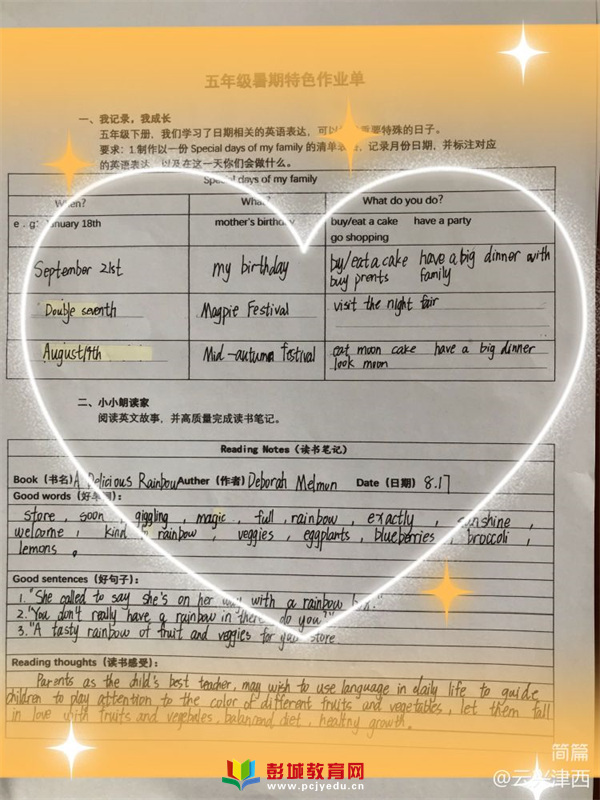 五年级暑期特色作业单
一、我记录，我成长
五年级下册，我们学习了日期相关的英语表达，可以 重要特殊的日子。
要求：1.制作以一份 Special days of my family 的清单表格，记录月份日期，并标注对应
的英语表达，以及在这一天你们会做什么。
Special days of my family
When? What? What do you do?
e . g: January 18th mother's birthday buy/eat a cake have a party
go shopping
September 21st my birthday by/eat a cake have a big dinner with
buy prents family
Double seventh Magpie Festival visit the night fair
August/14th Mid-autumn festival eat moon cake have a big dinner
look moon
二、小小朗读家
阅读英文故事，并高质量完成读书笔记。
Reading Notes（读书笔记）
Book（书名）A Delicious Rainbow Auther（作者）Deborah Melmon Date（日期）8.17
Good words（好单词）:
store , soon , giggling , magic , full , rainbow , exactly , sunshine ,
welcome , kind of rainbow , veggies , eggplants , blueberries , broccoli ,
lemons 。
Good sentences（好句子）:
1. "She called to say she's on her way with a rainbow box."
2. "You don't really have a rainbow in there, do you?"
3. "A tasty rainbow of fruit and veggies for your store
Reading thoughts（读书感受）:
Parents as the child's best teacher, may wish to use language in daily life to guide
children to play attention to the color of different fruits and vegetables, let them fall
in love with fruits and vegetables, balanced diet, healthy growth.
简篇
@云兴津西
彭城教育网
www.pcjyedu.cn